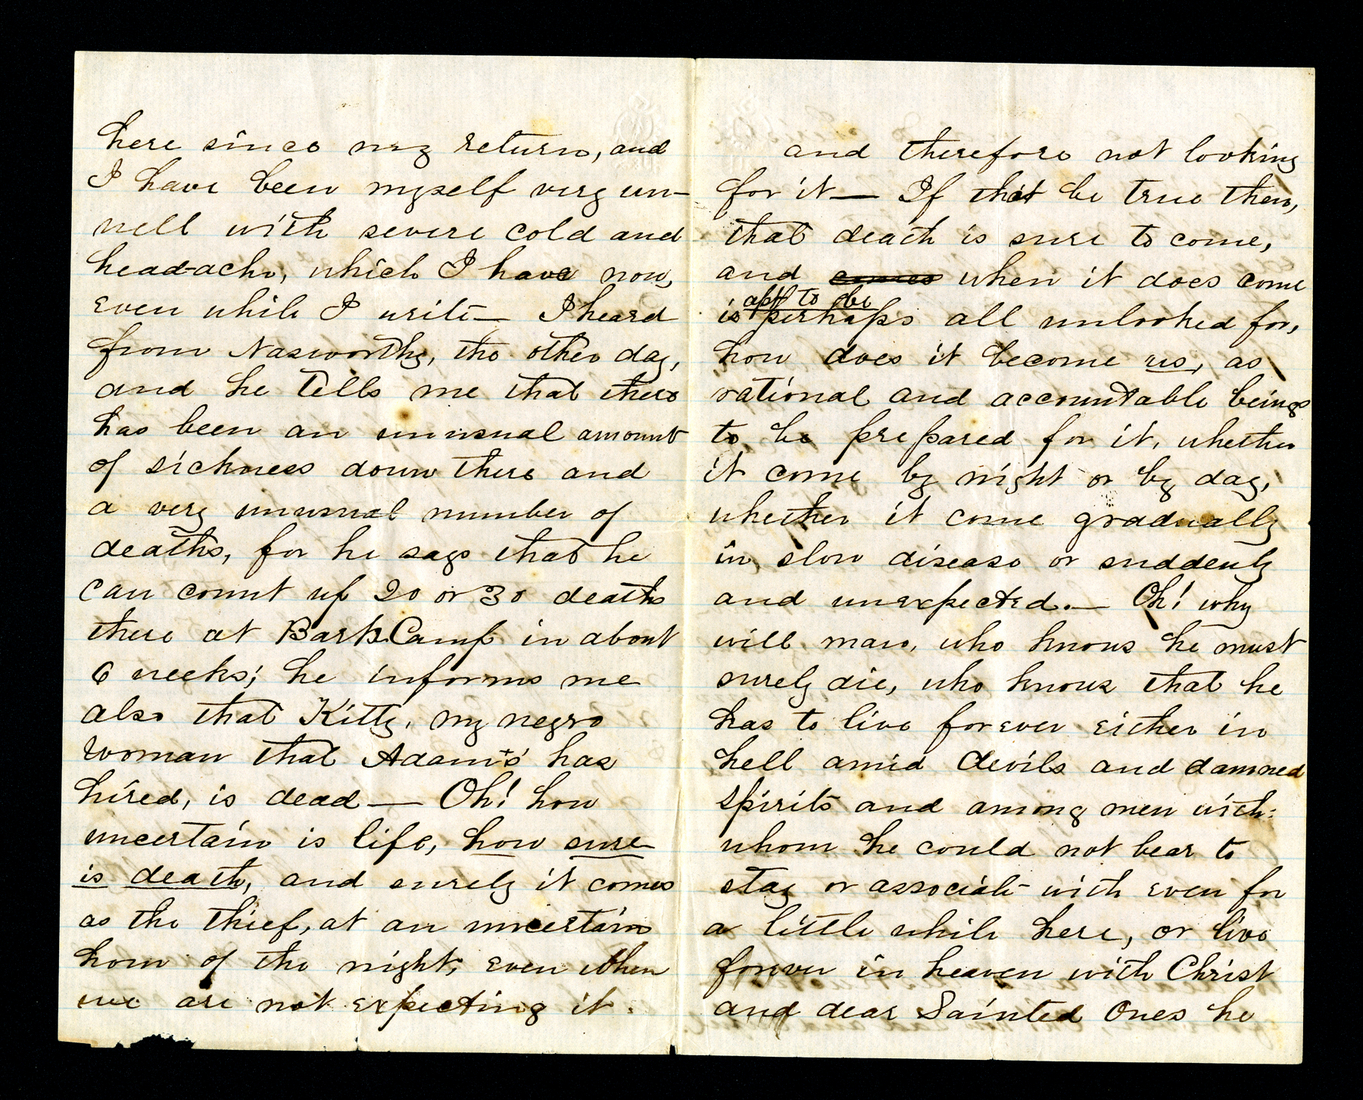 here since my return, and
I have been myself very un-
well with severe cold and
head-ache, which I have now,
even while I write— I heard
from Nasworthy, the other day,
and he tells me that there
has been an unusual amount
of sickness down there and
a very unusual number of
deaths, for he says that he
can count up 20 or 30 deaths
there at Bark Camp in about
6 weeks; he informs me
also that Kitty, my negro
woman that Adams has
hired, is dead— Oh! how
uncertain is life, how sure
is death, and surely it comes
as the thief, at an uncertain
hour of the night, even when
we are not expecting it.
and therefore not looking
for it— If that be true then,
that death is sure to come,
and comes when it does come
apt to be
is perhaps all unlooked for,
how does it become us, as
rational and accountable beings
to be prepared for it, whether
it come by night or by day,
whether it come gradually
in slow disease or suddenly
and unexpected.— Oh! why
will man, who knows he must
surely die, who knows that he
has to live forever either in
hell amid devils and damned
spirits and among men with
whom he could not bear to
stay or associate with even for
a little while here, or live
forever in heaven with Christ
and dear Sainted Ones he